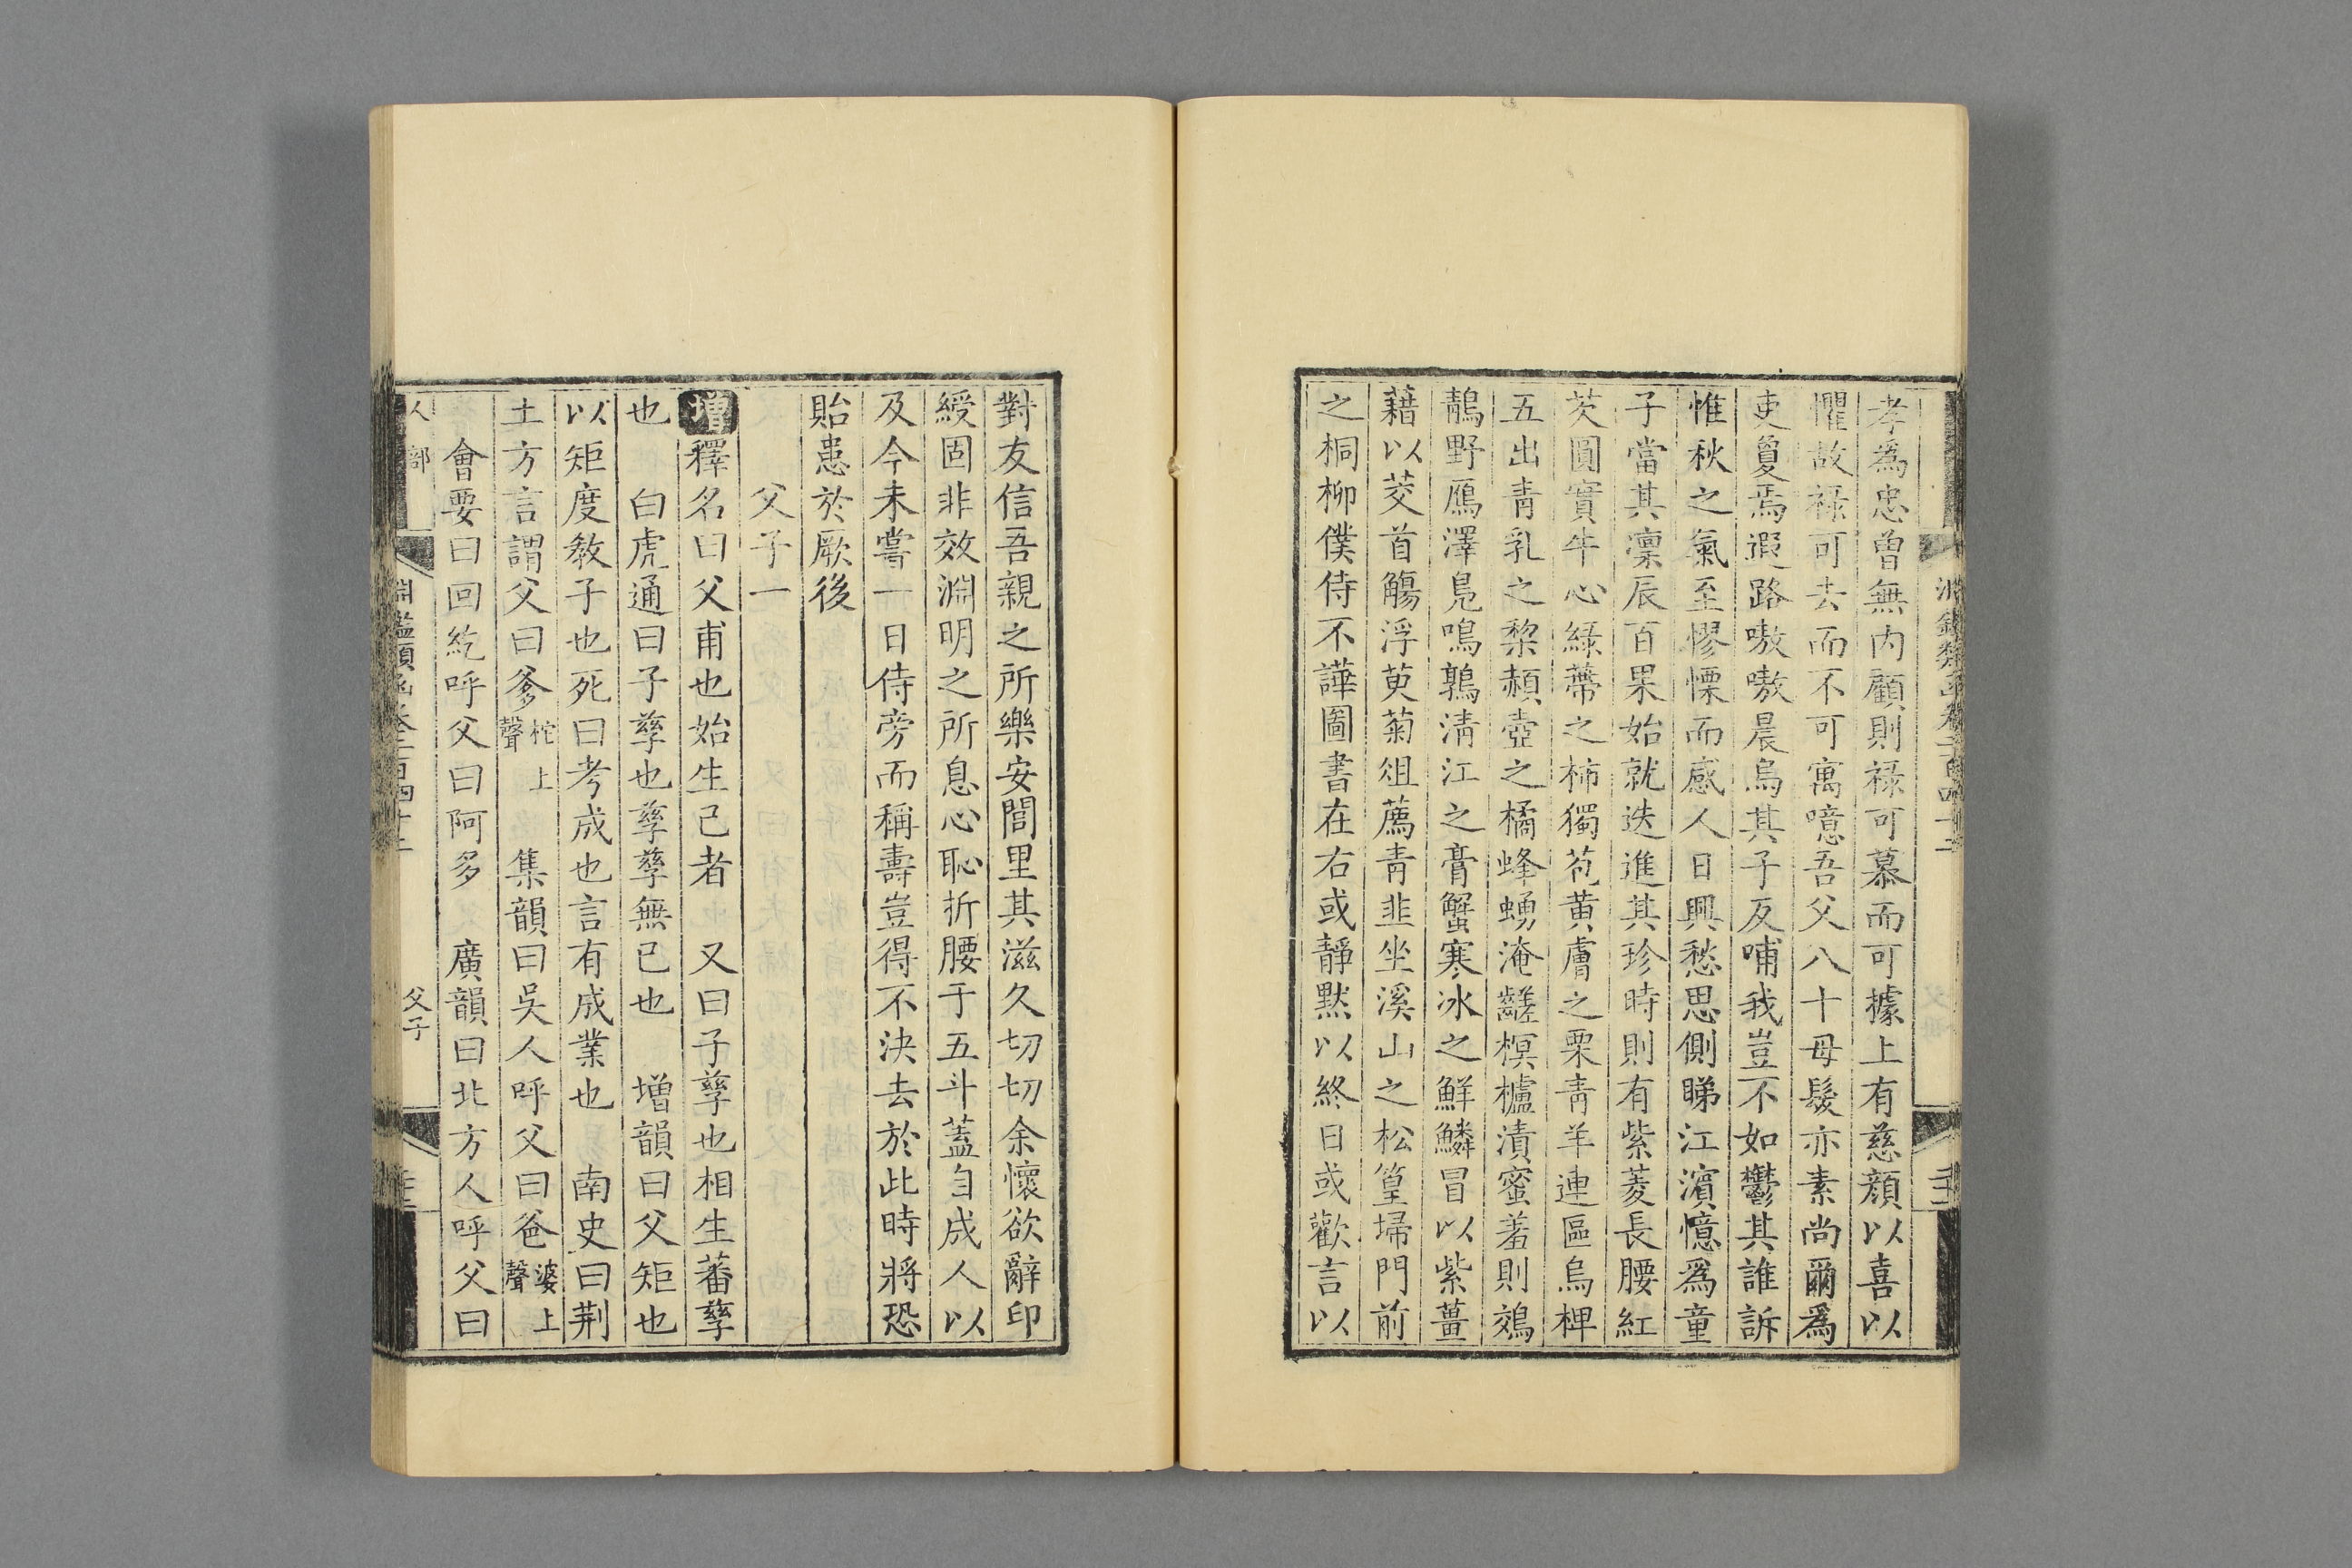 孝爲忠曾無内顧則祿可慕而可據上有慈顔以喜以
懼故祿可去而不可寓噫吾父八十母髮亦素尚爾爲
吏夐焉遐路嗷嗷晨烏其子反哺我豈不如鬱其誰訴
惟秋之氣至憀慄而感人日興愁思側睇江濱憶爲童
子當其凜辰百果始就迭進其珍時則有紫菱長腰紅
芡圓實牛心綠蔕之柿獨苞黄膚之栗青羊連區烏椑
五出青乳之棃赬壺之橘蜂蛹淹醝榠樝漬蜜羞則鵁
鶄野鴈澤鳧鳴鶉清江之膏蟹寒冰之鮮鱗冒以紫薑
藉以茭首觴浮萸菊俎薦青韭坐溪山之松篁埽門前
之桐柳僕侍不譁圖書在右或靜默以終日或歡言以
對友信吾親之所樂安閭里其滋久切切余懷欲辭印
綬固非效淵明之所息心恥折腰于五斗蓋自成人以
及今未嘗一日侍旁而稱壽豈得不決去於此時將恐
貽患於厥後
父子一
增釋名曰父甫也始生己者　又曰子孳也相生蕃孳
也　白虎通曰子孳也孳孳無已也　增韻曰父矩也
以矩度教子也死曰考成也言有成業也　南史曰荆
土方言謂父曰爹柁上聲　集韻曰吳人呼父曰爸婆上聲
會要曰回紇呼父曰阿多　廣韻曰北方人呼父曰
人部
淵鑑類函卷二百四十二
父子